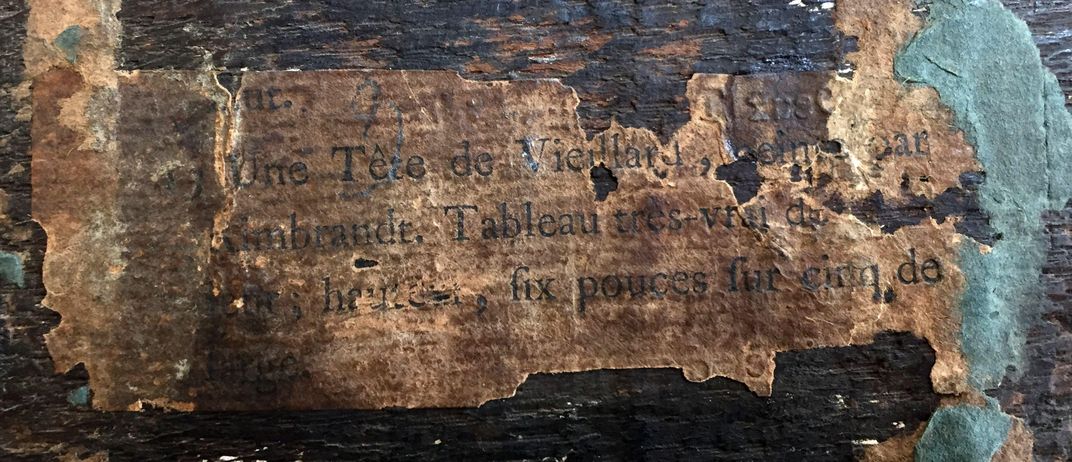 Une Tête de Vieillard, peint par
Rimbrandt. Tableau très-vrai de
hauteur, ſix pouces ſur cinq de
large.